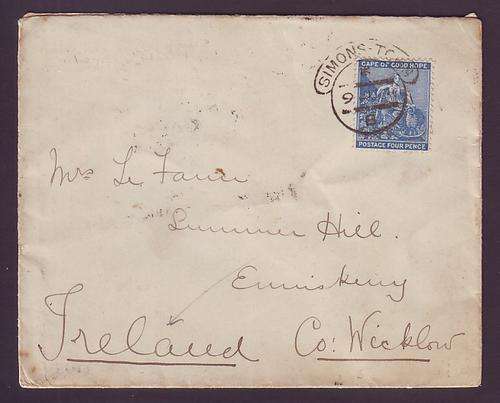 SIMONS-TO
CAPE OF GOOD HOPE
POSTAGE FOUR PENCE
Mrs Le Fanu
Summer Hill.
Enniskerry
Ireland Co: Wicklow